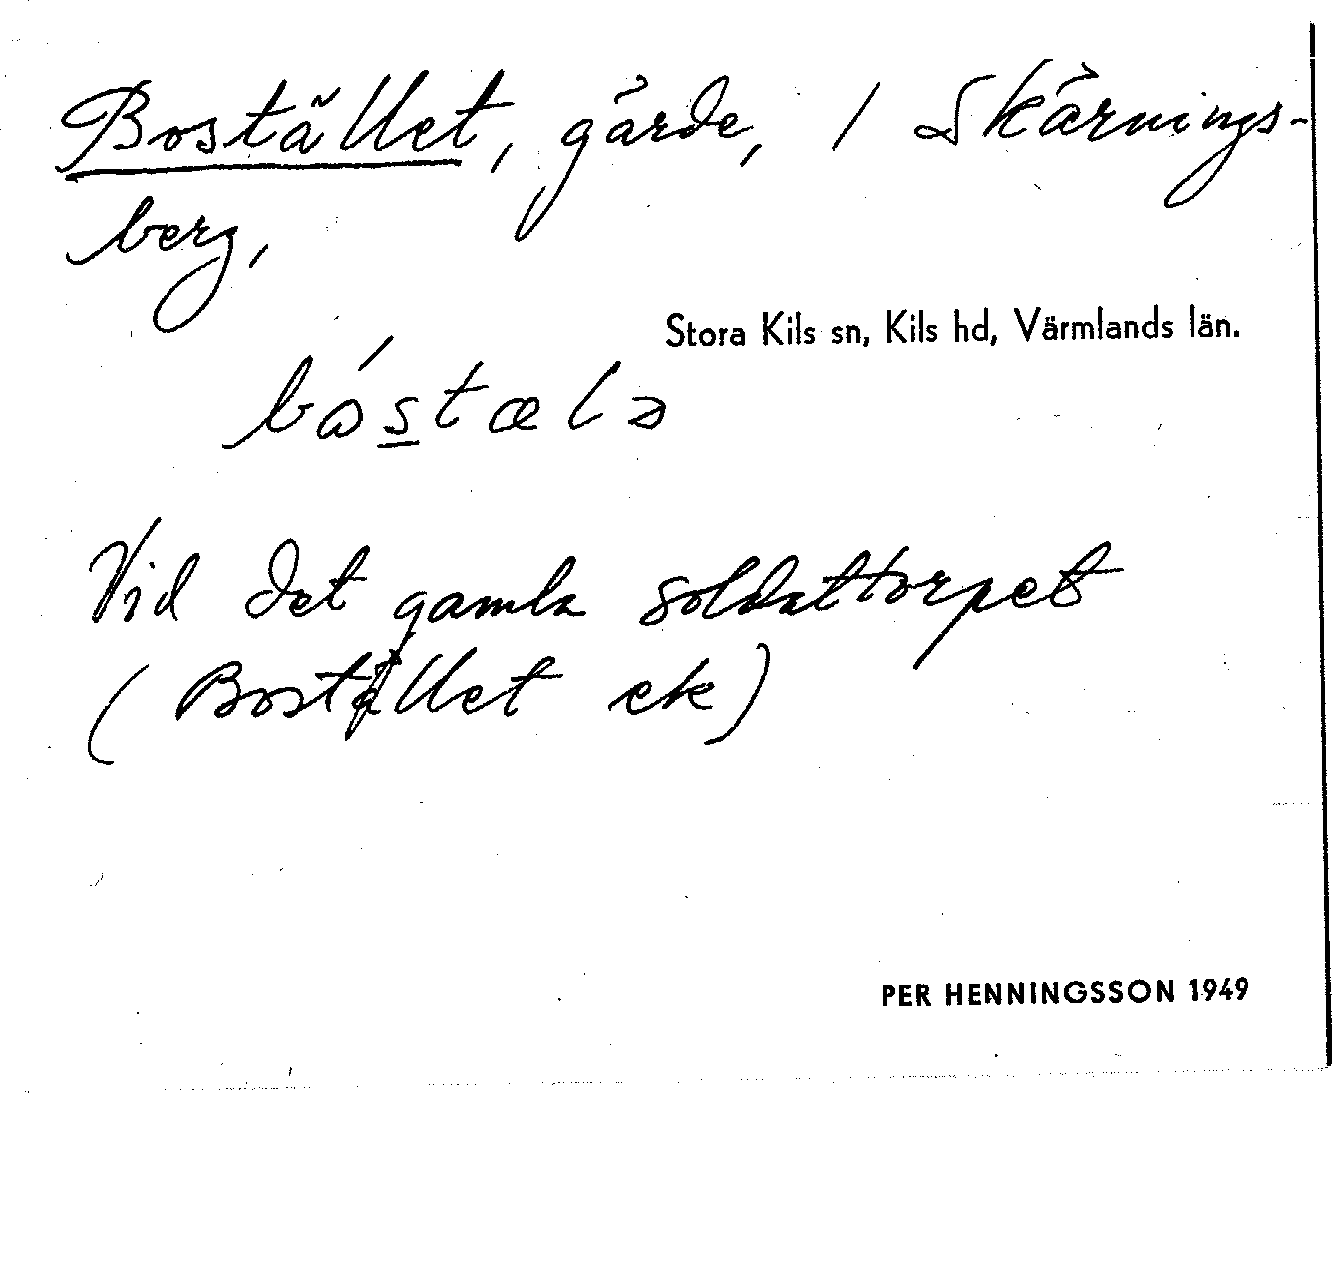 Bostället, gärde, / Skärnings-
berg,
Stora Kils sn, Kils hd, Värmlands län.
Vid det gamla soldattorpet
(Bostället ek)
PER HENNINGSSON 1949